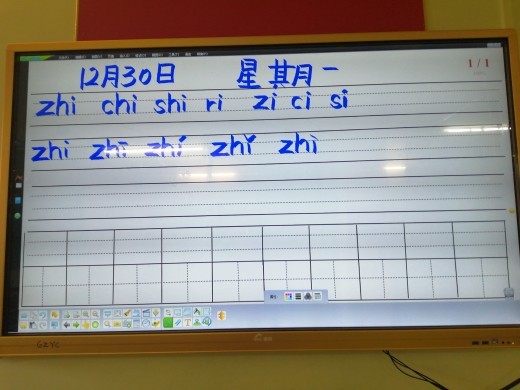 12月30日 星其月一
1/1
zhi chi shi ri zi ci si
zhi zhī zhí zhǐ zhì
GZYC